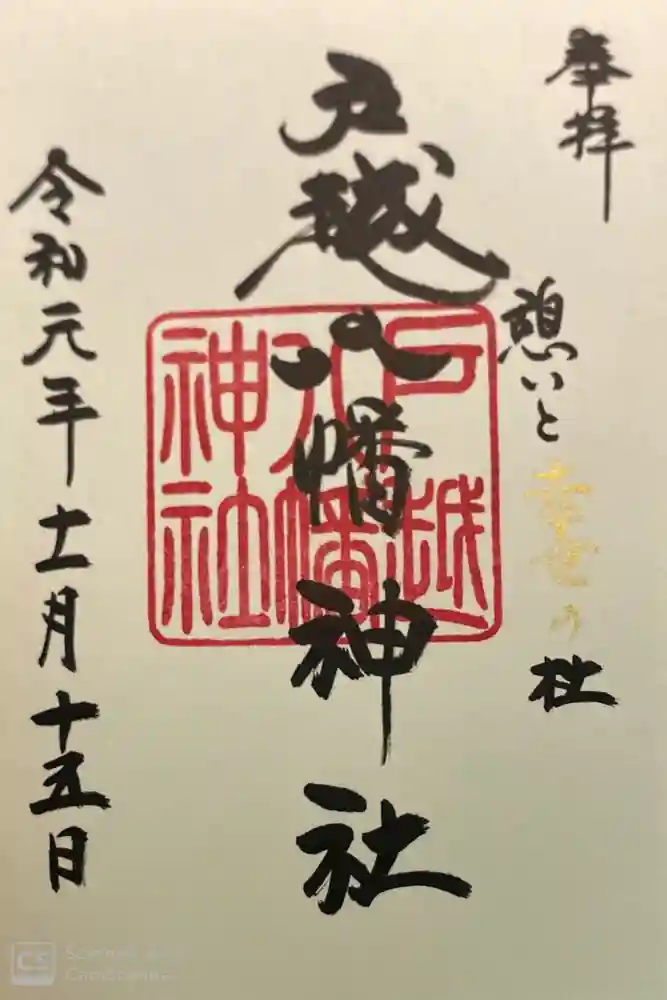 奉拝
憩いと
杜
戸越八幡神社
戸越
八幡
神社
令和元年十一月十五日
CS
CamScanner